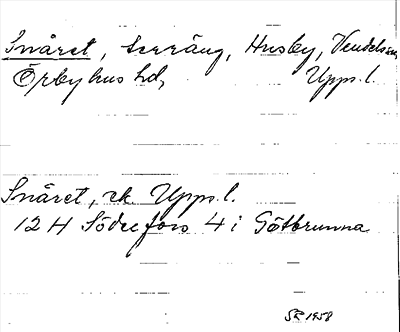 Snåret, terräng, Husby, Vendels sn,
Örbyhus hd, Upps. l.
Snåret, rk Upps. l.
12 H Söderfors 4 i Götbrunna
SR 1958